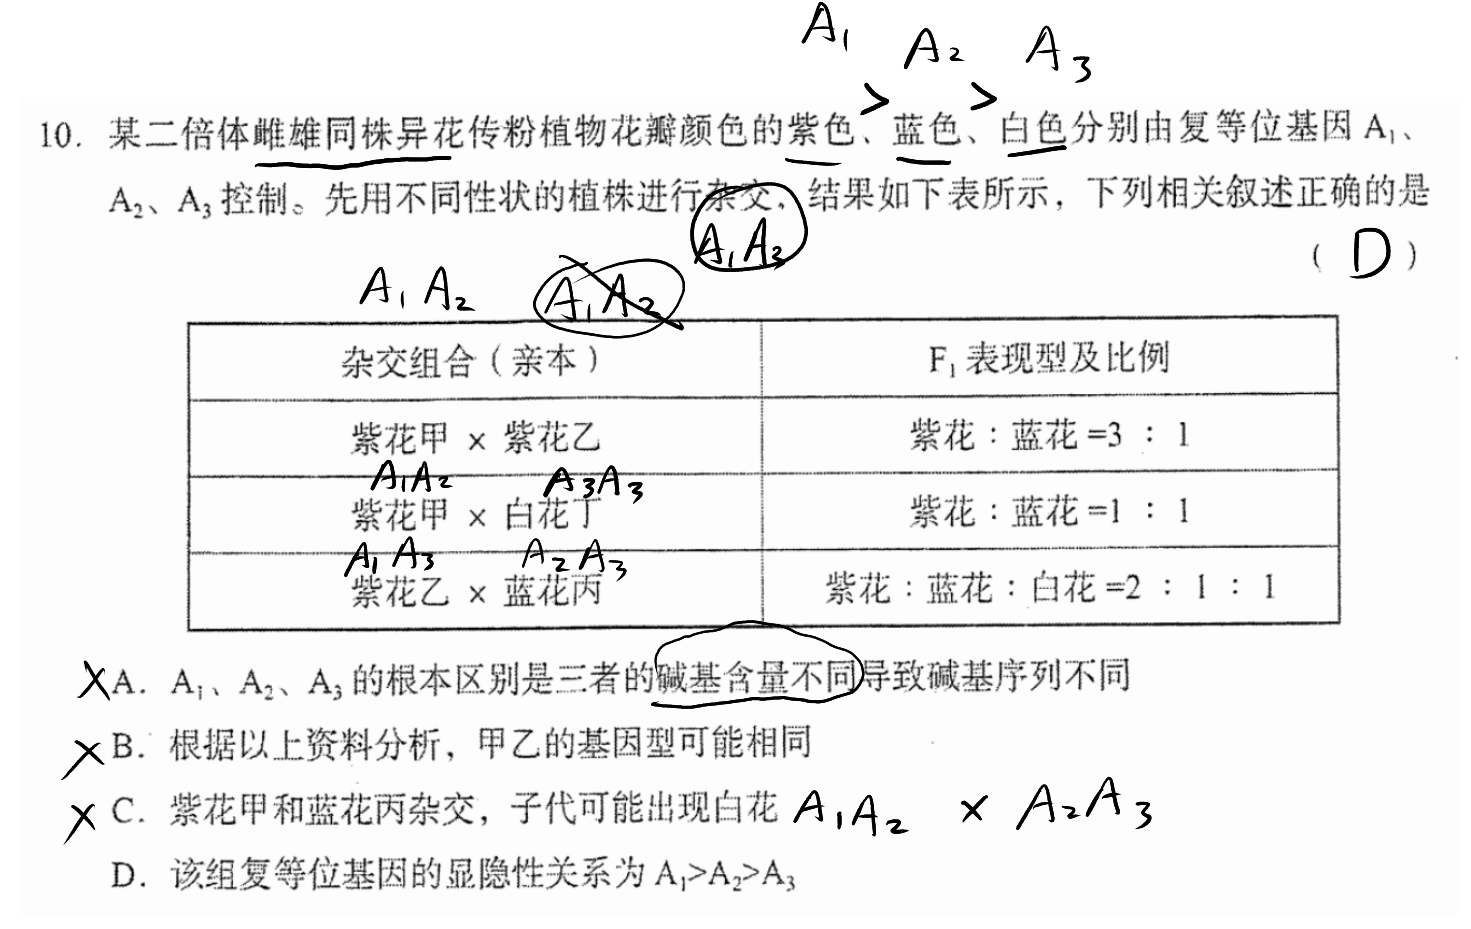 A₁ A₂ A₃
> >
10. 某二倍体雌雄同株异花传粉植物花瓣颜色的紫色、蓝色、白色分别由复等位基因 A₁、
A₂、A₃ 控制。先用不同性状的植株进行杂交，结果如下表所示，下列相关叙述正确的是
A₁A₃
( D )
A₁A₂ A₁A₂
杂交组合（亲本） F₁ 表现型及比例
紫花甲 × 紫花乙 紫花：蓝花=3 : 1
A₁A₂ A₃A₃
紫花甲 × 白花丁 紫花：蓝花=1 : 1
A₁A₃ A₂A₃
紫花乙 × 蓝花丙 紫花：蓝花：白花=2 : 1 : 1
×A. A₁、A₂、A₃ 的根本区别是三者的碱基含量不同导致碱基序列不同
×B. 根据以上资料分析，甲乙的基因型可能相同
×C. 紫花甲和蓝花丙杂交，子代可能出现白花 A₁A₂ × A₂A₃
D. 该组复等位基因的显隐性关系为 A₁>A₂>A₃